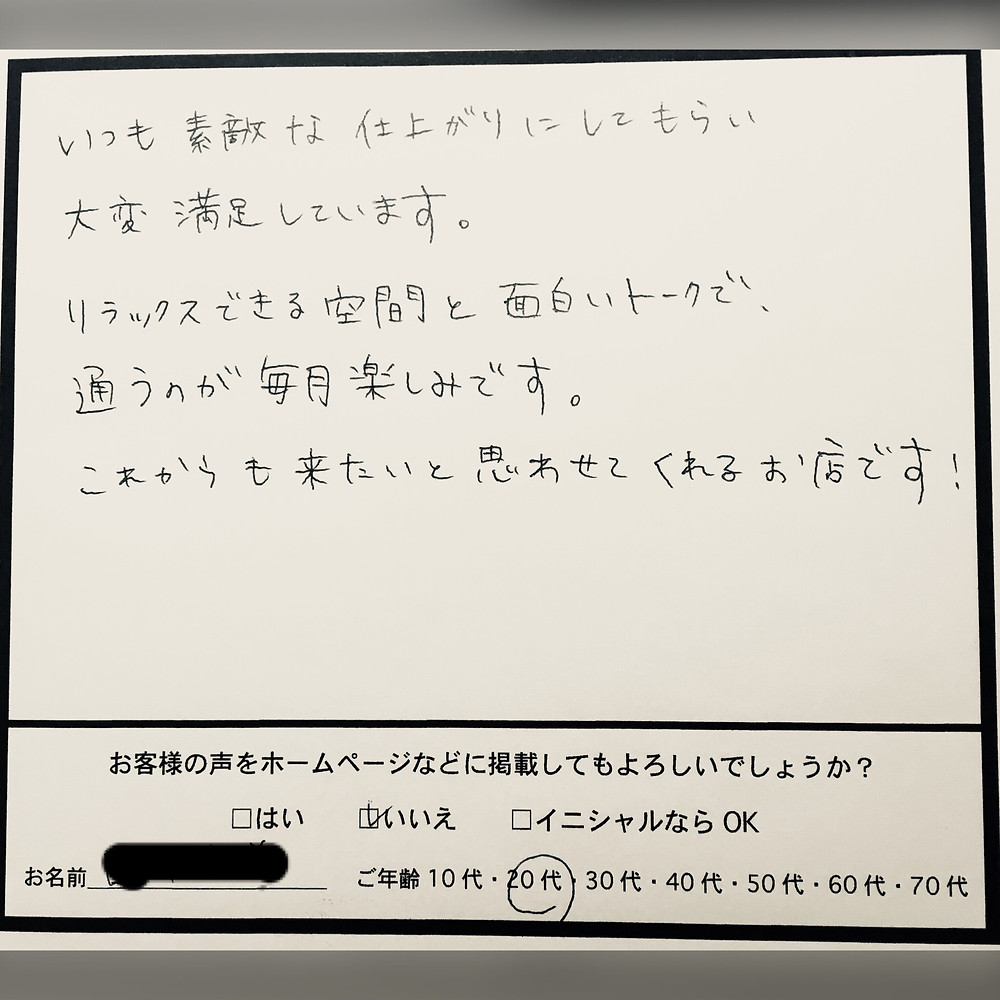 いつも素敵な仕上がりにしてもらい
大変満足しています。
リラックスできる空間と面白いトークで、
通うのが毎月楽しみです。
これからも来たいと思わせてくれるお店です!
お客様の声をホームページなどに掲載してもよろしいでしょうか?
□はい □いいえ □イニシャルならOK
お名前 ご年齢 10代・20代・30代・40代・50代・60代・70代